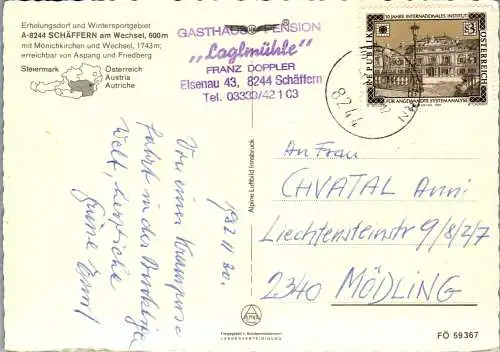 Erholungsdorf und Wintersportgebiet
A-8244 SCHÄFFERN am Wechsel, 600 m
mit Mönichkirchen und Wechsel, 1743 m;
erreichbar von Aspang und Friedberg
Steiermark
Österreich
Austria
Autriche
GASTHAUS PENSION
„Laglmühle"
FRANZ DOPPLER
Elsenau 43, 8244 Schäffern
Tel. 03339/42 1 03
10 JAHRE INTERNATIONALES INSTITUT
REPUBLIK
S 3
ÖSTERREICH
FÜR ANGEWANDTE SYSTEMANALYSE
8244
Alpine Luftbild Innsbruck
1982 11 20.
Von einer
Fahrt in die
Welt, herzliche
Grüße
An Frau
CHVATAL Anni
Liechtensteinstr 9/8/2/7
2340 MÖDLING
FÖ 59367